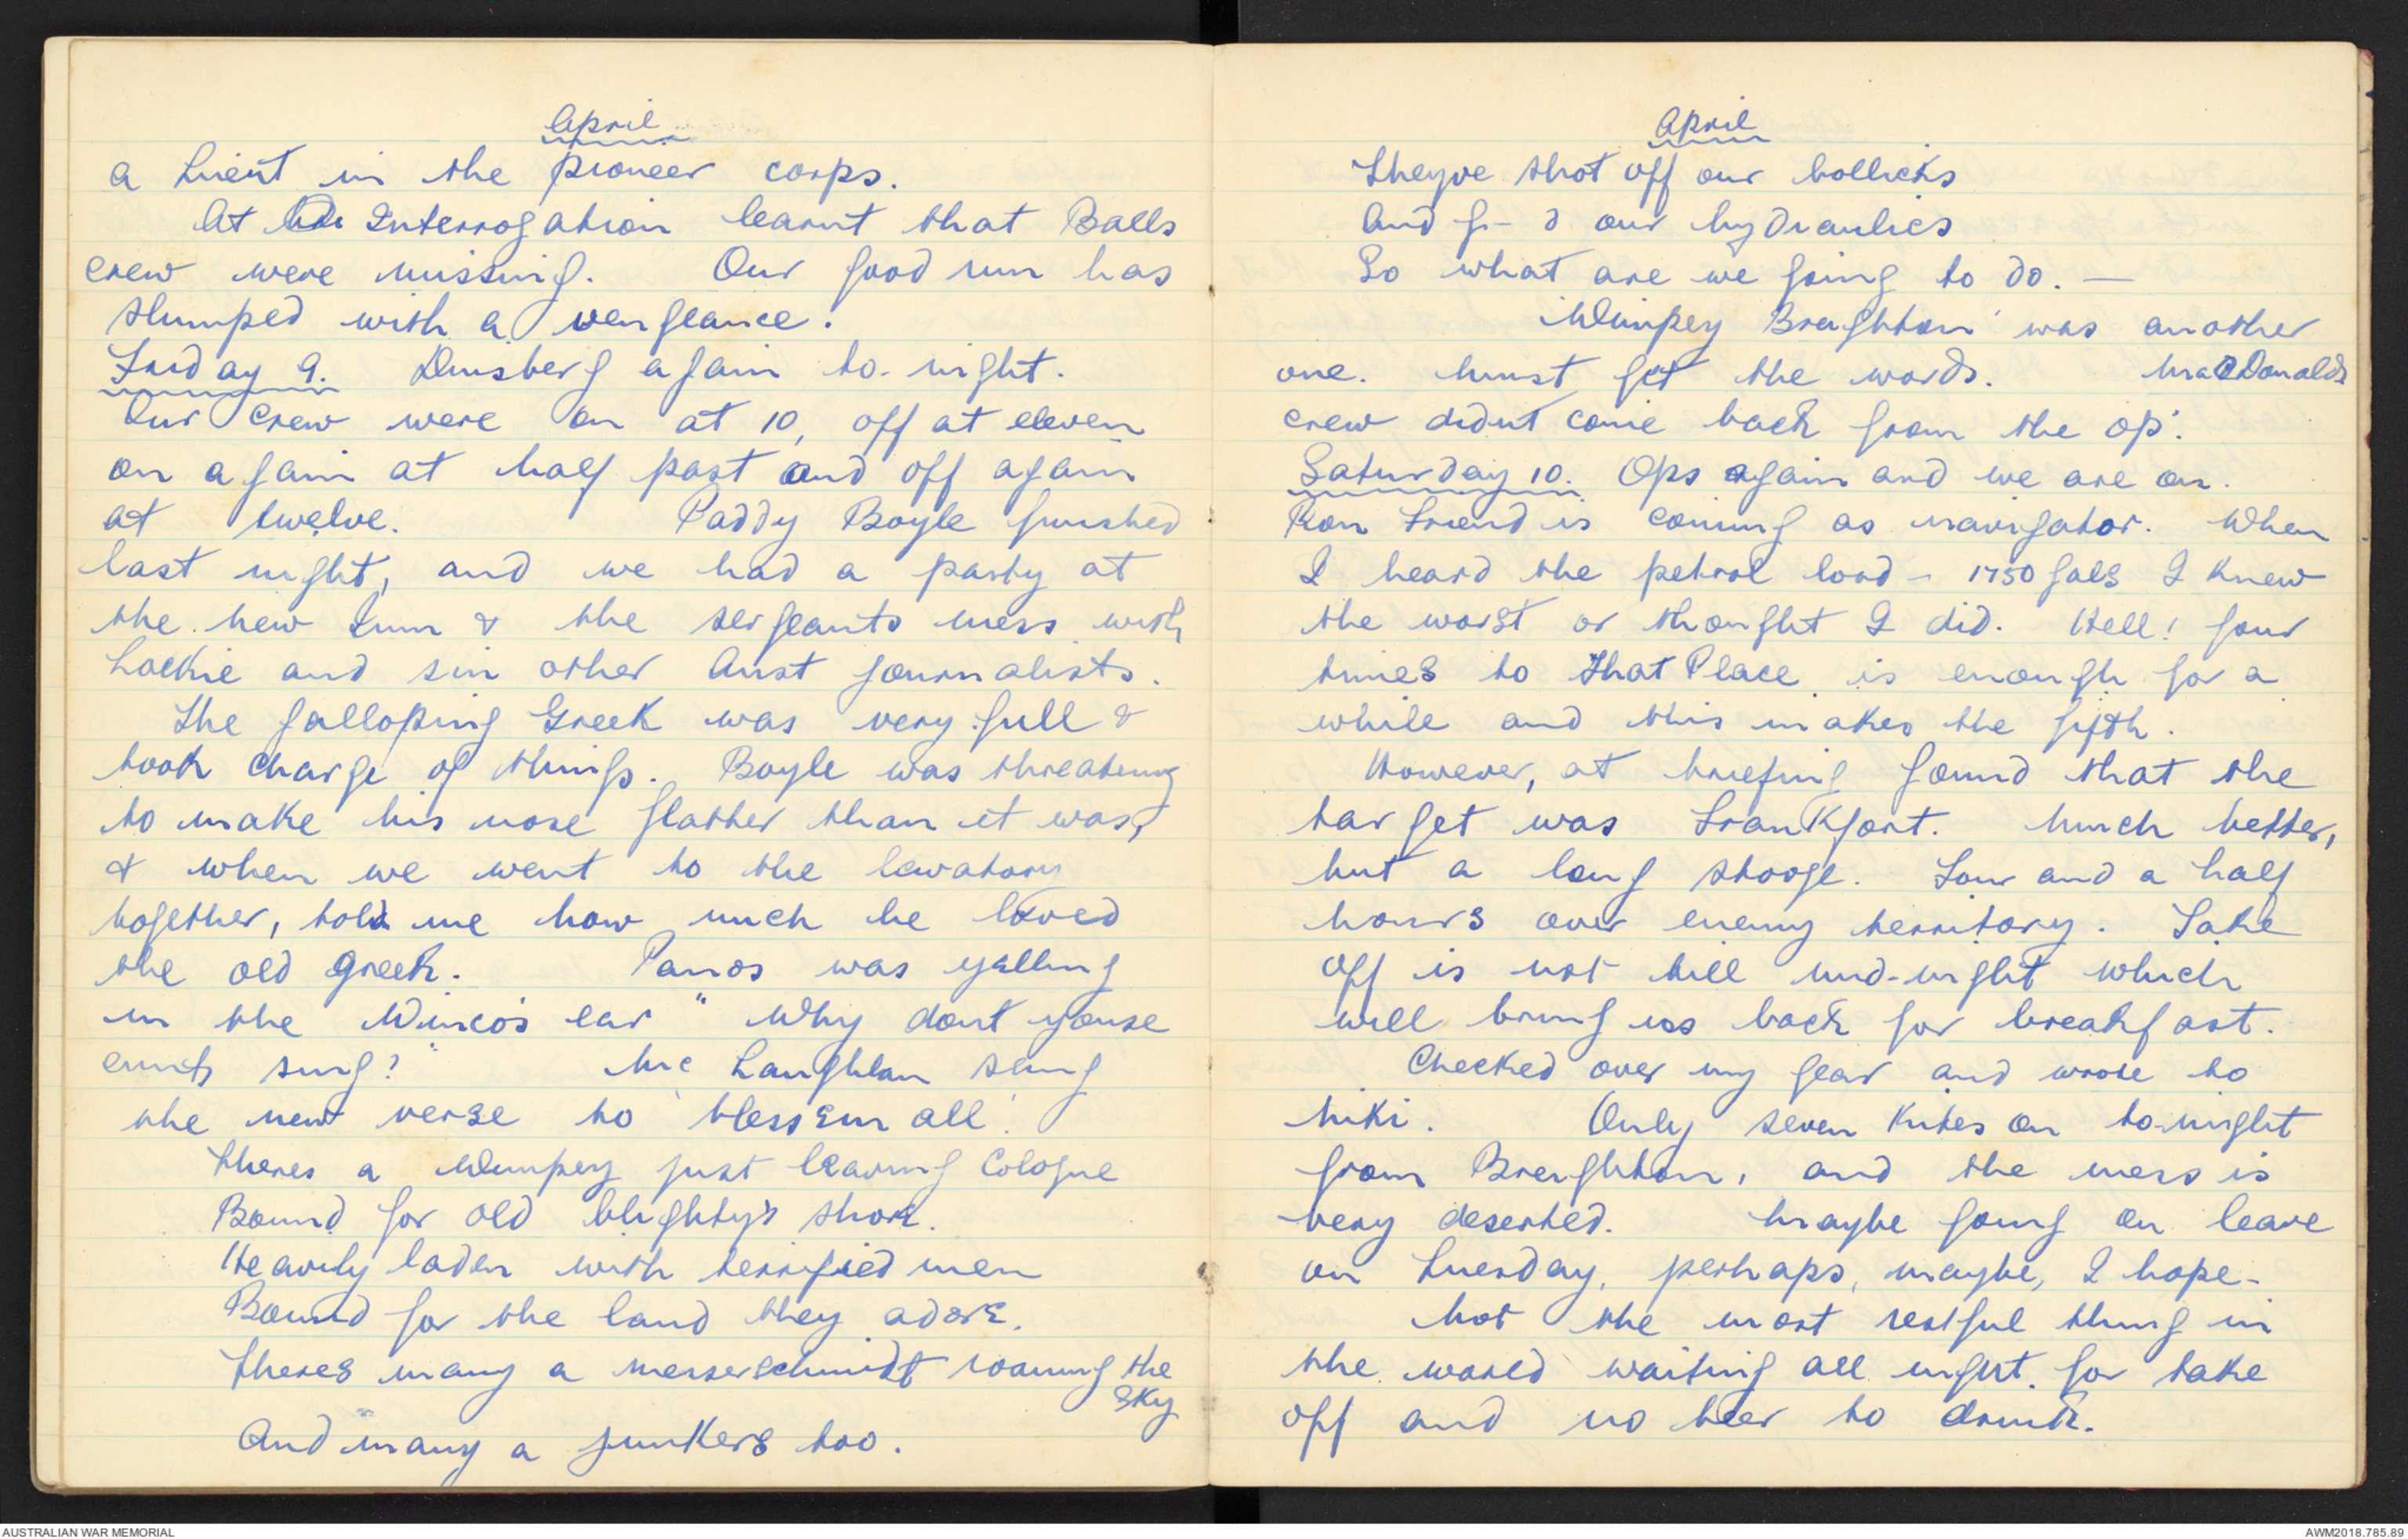 April
a Lieut in the pioneer corps.
At Interrogation learnt that Balls
crew were missing. Our good run has
slumped with a vengeance.
Friday 9. Duisberg again to-night.
Our crew were on at 10, off at eleven
on again at half past and off again
at twelve. Paddy Boyle finished
last night, and we had a party at
the new Inn & the sergeants mess with
Lockie and six other Aust journalists.
The galloping Greek was very full &
took charge of things. Boyle was threatening
to make his nose flatter than it was,
& when we went to the lavatory
together, told me how much he loved
the old greek. Panos was yelling
in the Winco's ear "Why dont youse
cunts sing?" Mc Laughlan sang
the new verse to 'bless em all'.
Theres a Wimpey just leaving Cologne
Bound for old blighty's shore.
Heavily laden with terrified men
Bound for the land they adore.
Theres many a messerschmidt roaming the
sky
And many a junkers too.
April
Theyve shot off our bollicks
And f-d our hydraulics
So what are we going to do. —
'Wimpey Breighton' was another
one. Must get the words. MacDonalds
crew didnt come back from the op'.
Saturday 10. Ops again and we are on.
Ron Friend is coming as navigator. When
I heard the petrol load - 1750 gals I knew
the worst or thought I did. Hell! four
times to that Place is enough for a
while and this makes the fifth.
However, at briefing found that the
target was Frankfort. Much better,
but a long stooge. Four and a half
hours over enemy territory. Take
off is not till mid-night which
will bring us back for breakfast.
Checked over my gear and wrote to
Miki. Only seven kites on to-night
from Breighton, and the mess is
very deserted. Maybe going on leave
on Tuesday, perhaps, maybe, I hope-
Not the most restful thing in
the world waiting all night for take
off and no beer to drink.
AUSTRALIAN WAR MEMORIAL
AWM2018.785.89